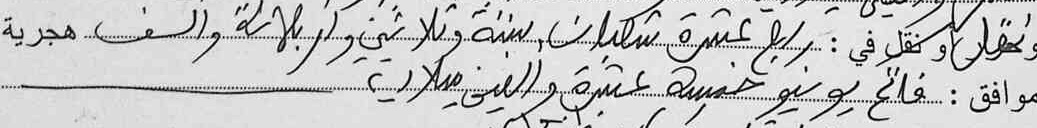 وثقل أو نقل في : رابع عشرة شعبان سنة وثلاثين وأربعمائة وألف هجرية
موافق : فاتح يونيو خمسة عشرة وألفين ميلادية